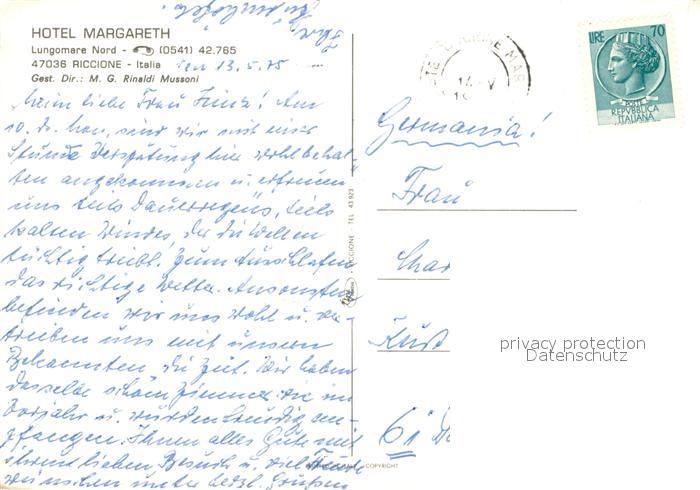 HOTEL MARGARETH
Lungomare Nord - (0541) 42.765
47036 RICCIONE - Italia
Gest. Dir.: M. G. Rinaldi Mussoni
den 13.5.75
Mein liebe Frau! Am
10. ds. Mon. sind wir mit einer
Stunde Verspätung hier wohlbehal-
ten angekommen u. erfreuen
uns teils Dauerregens, teils
kalten Windes, der die Wellen
tüchtig treibt. Zum Ausschlafen
das richtige Wetter. Ansonsten
befinden wir uns wohl u. ver-
treiben uns mit unseren
Bekannten die Zeit. Wir haben
dasselbe schöne Zimmer wie im
Vorjahr u. wurden freudig em-
pfangen. Ihnen alles Gute mit
Ihrem lieben Besuch u. viel Freude
wünschen unter herzl. Grüßen
Germania!
Frau
6
LIRE 70
POSTE
REPVBBLICA
ITALIANA
14 V
RICCIONE TEL 43 923
COPYRIGHT
privacy protection
Datenschutz